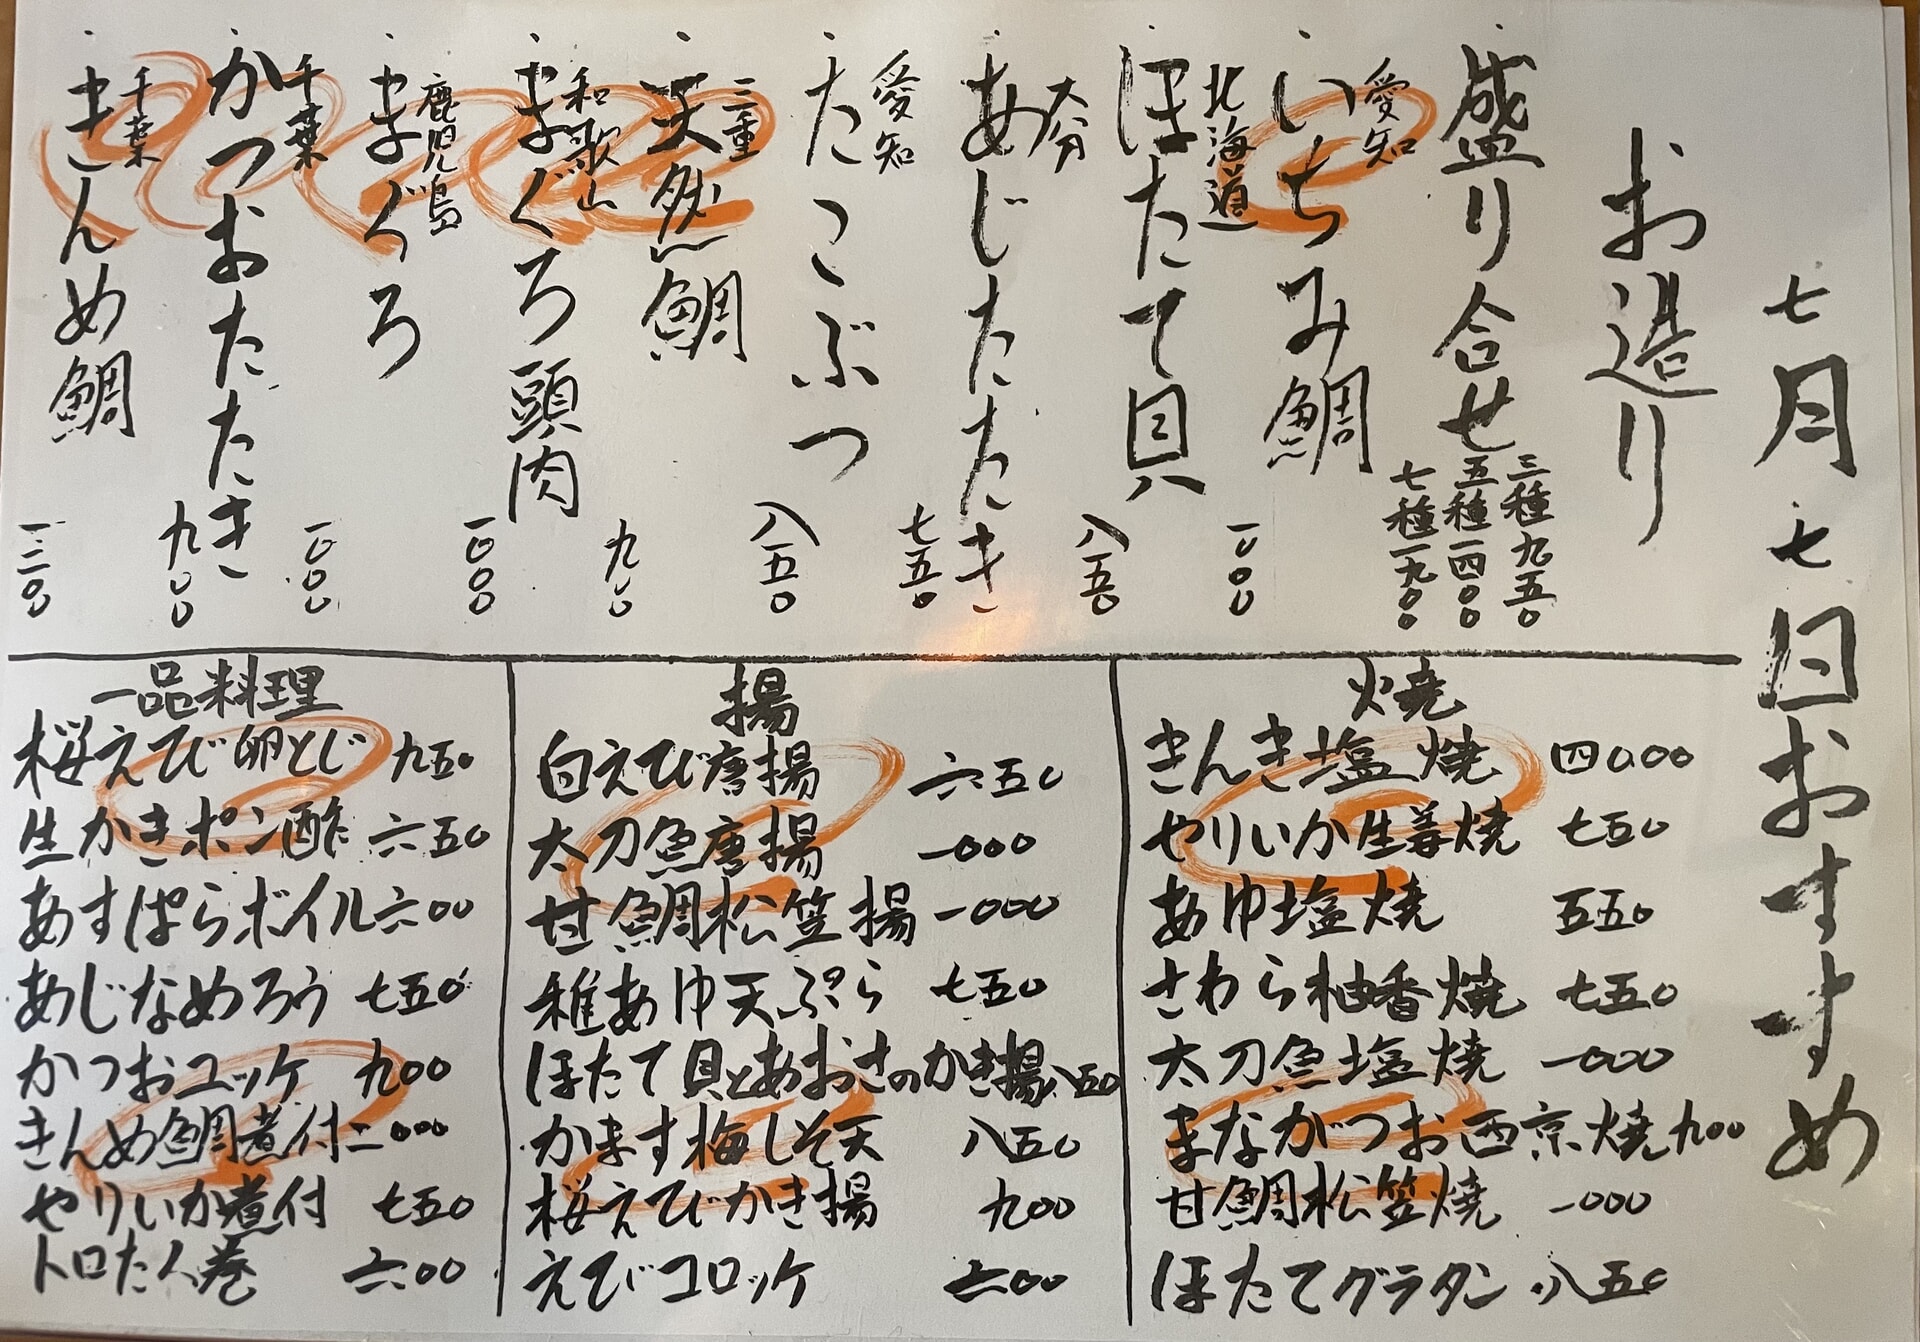 七月七日おすすめ
お造り
盛り合せ
三種九五〇
五種一四〇〇
七種一九〇〇
愛知
いちみ鯛
一〇〇〇
北海道
ほたて貝
八五〇
大分
あじたたき
七五〇
愛知
たこぶつ
八五〇
三重
天然鯛
九〇〇
和歌山
まぐろ頭肉
一〇〇〇
鹿児島
まぐろ
一〇〇〇
千葉
かつおたたき
九〇〇
千葉
きんめ鯛
一二〇〇
焼
きんき塩焼 四〇〇〇
やりいか生姜焼 七五〇
あゆ塩焼 五五〇
さわら柚香焼 七五〇
太刀魚塩焼 一〇〇〇
まながつお西京焼 九〇〇
甘鯛松笠焼 一〇〇〇
ほたてグラタン 八五〇
揚
白えび唐揚 六五〇
太刀魚唐揚 一〇〇〇
甘鯛松笠揚 一〇〇〇
稚あゆ天ぷら 七五〇
ほたて貝とあおさのかき揚 八五〇
かます梅しそ天 八五〇
桜えびかき揚 九〇〇
えびコロッケ 六〇〇
一品料理
桜えび卵とじ 九五〇
生かきポン酢 六五〇
あすぱらボイル 六〇〇
あじなめろう 七五〇
かつおユッケ 九〇〇
きんめ鯛煮付 二〇〇〇
やりいか煮付 七五〇
トロたく巻 六〇〇